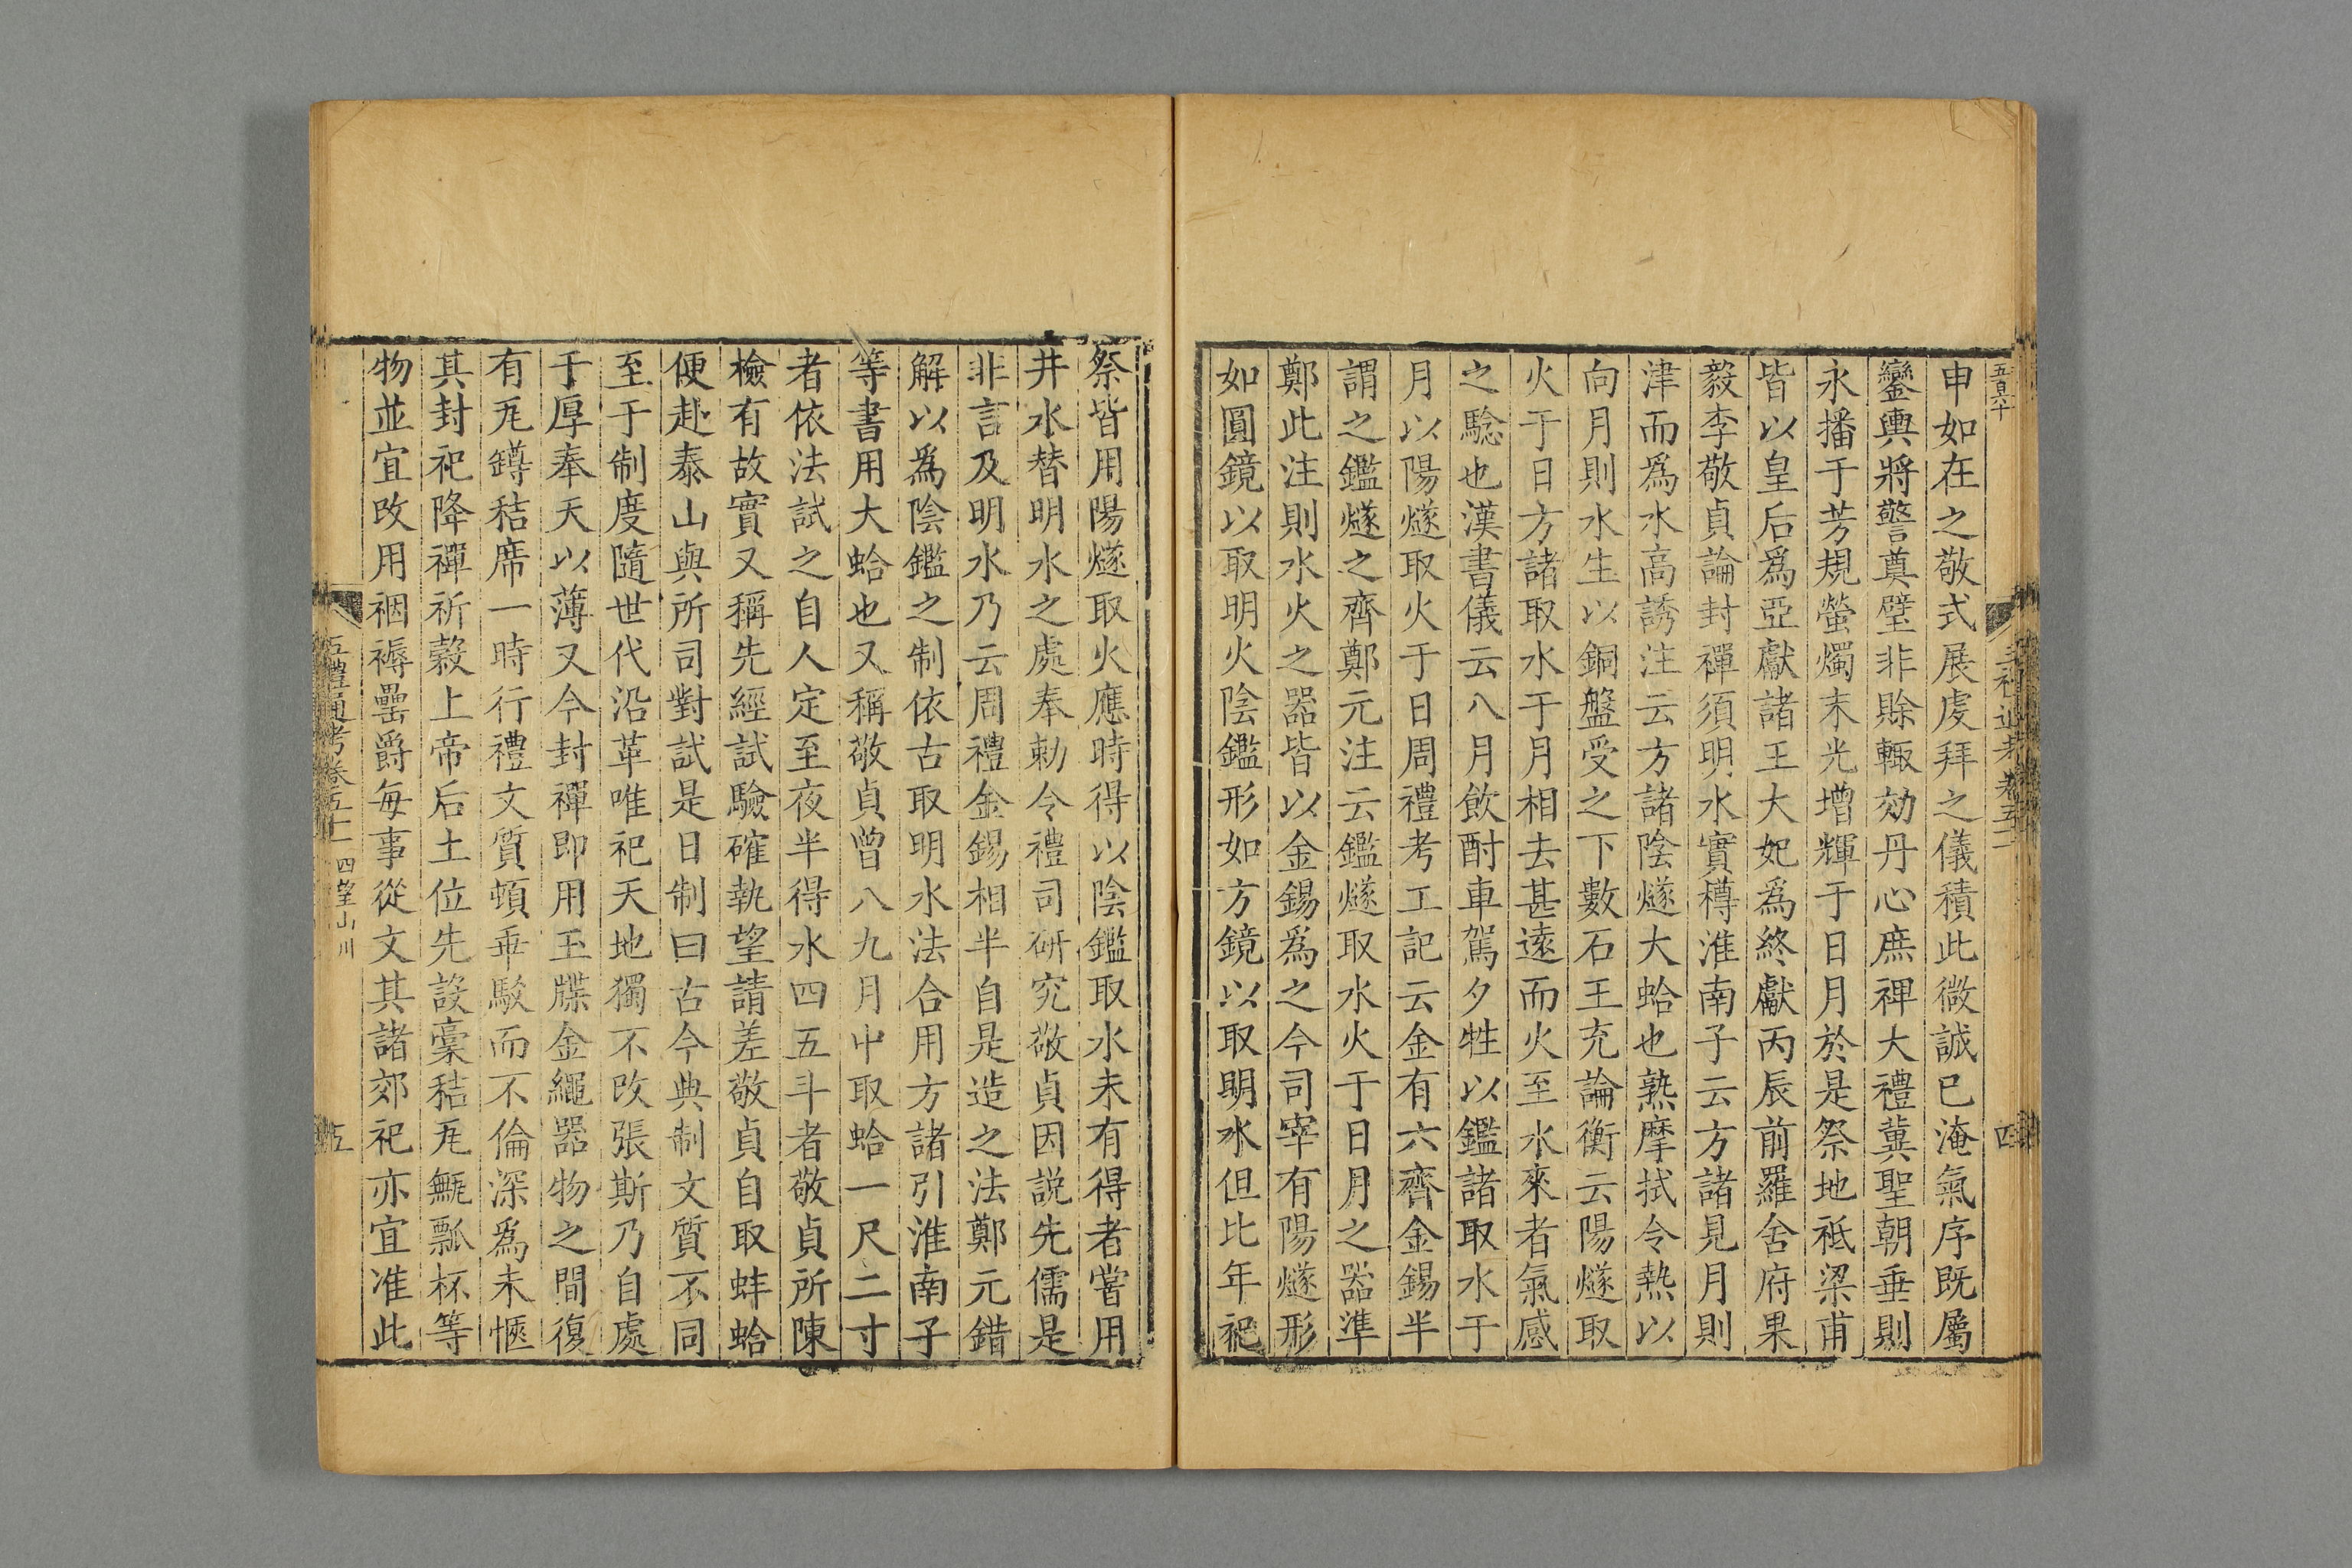 申如在之敬式展虔拜之儀積此微誠已淹氣序既屬
鑾輿將警奠璧非賒輙効丹心庶禆大禮冀聖朝垂則
永播于芳規螢燭末光增輝于日月於是祭地祗梁甫
皆以皇后爲亞獻諸王大妃爲終獻丙辰前羅舍府果
毅李敬貞論封禪須明水實樽淮南子云方諸見月則
津而爲水高誘注云方諸陰燧大蛤也熟摩拭令熱以
向月則水生以銅盤受之下數石王充論衡云陽燧取
火于日方諸取水于月相去甚遠而火至水來者氣感
之驗也漢書儀云八月飲酎車駕夕牲以鑑諸取水于
月以陽燧取火于日周禮考工記云金有六齊金錫半
謂之鑑燧之齊鄭元注云鑑燧取水火于日月之器準
鄭此注則水火之器皆以金錫爲之今司宰有陽燧形
如圓鏡以取明火陰鑑形如方鏡以取明水但比年祀
祭皆用陽燧取火應時得以陰鑑取水未有得者嘗用
井水替明水之處奉勅令禮司研究敬貞因說先儒是
非言及明水乃云周禮金錫相半自是造之法鄭元錯
解以爲陰鑑之制依古取明水法合用方諸引淮南子
等書用大蛤也又稱敬貞曾八九月中取蛤一尺二寸
者依法試之自人定至夜半得水四五斗者敬貞所陳
檢有故實又稱先經試驗確執望請差敬貞自取蚌蛤
便赴泰山與所司對試是日制曰古今典制文質不同
至于制度隨世代沿革唯祀天地獨不改張斯乃自處
于厚奉天以薄又今封禪即用玉牒金繩器物之間復
有瓦罇秸席一時行禮文質頓乖駁而不倫深爲未愜
其封祀降禪祈穀上帝后土位先設藁秸瓦甒瓢杯等
物並宜改用裀褥罍爵每事從文其諸郊祀亦宜准此
五禮通考卷五十二 四望山川 五